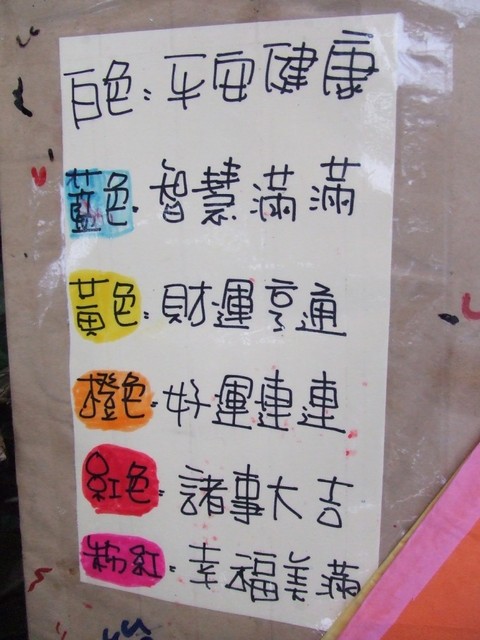 白色：平安健康
藍色：智慧滿滿
黃色：財運亨通
橙色：好運連連
紅色：諸事大吉
粉紅：幸福美滿